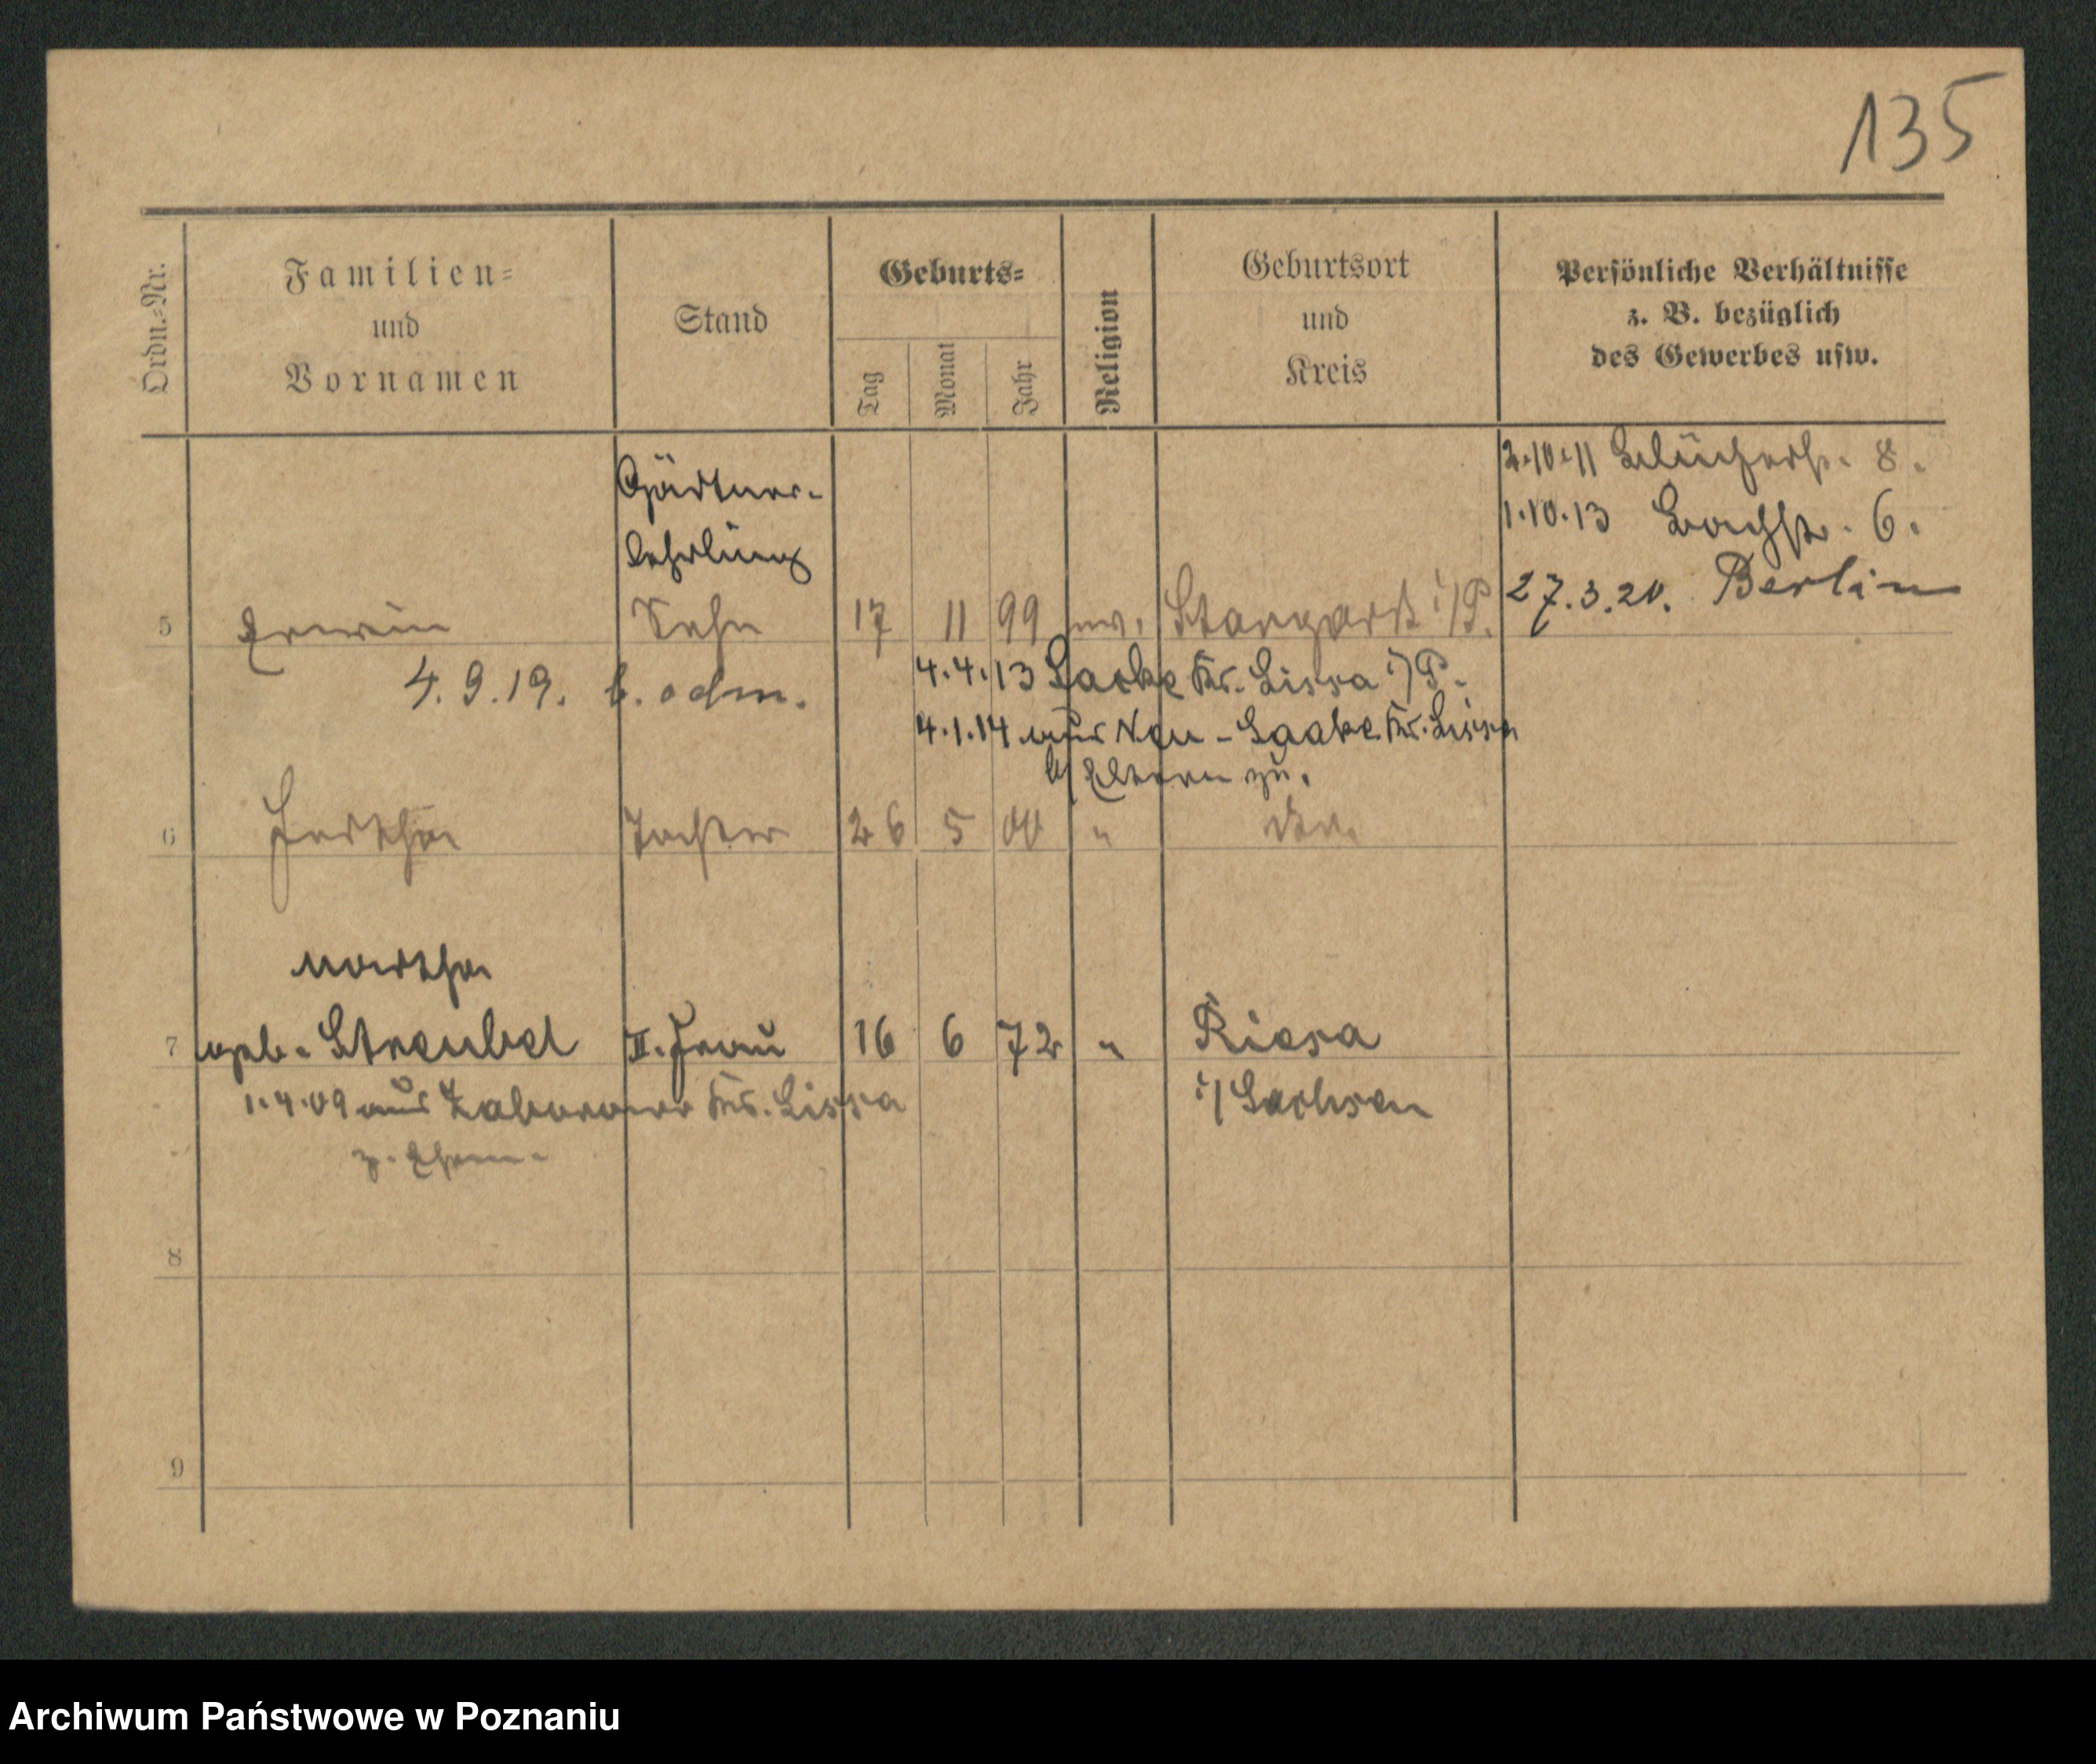 135
Ordn.-Nr.
Familien-
und
Vornamen
Stand
Geburts-
Tag
Monat
Jahr
Religion
Geburtsort
und
Kreis
Persönliche Verhältnisse
z. B. bezüglich
des Gewerbes usw.
2.10.11 Blücherstr. 8.
1.10.13 Bachstr. 6.
27.3.20. Berlin
Gärtner-
lehrling
5 Erwin Sohn 17 11 99 ev. Stargard i/P.
4.9.19.
4.4.13 Laske Kr. Lissa i/P.
4.1.14 aus Neu-Laake Kr. Lissa
b/ Eltern zu.
6 Hertha Tochter 26 5 00 " do.
Martha
7 geb. Streubel II. Frau 16 6 72 " Riesa
1.4.09 aus Zaborowo Kr. Lissa i/Sachsen
z. Ehem.
8
9
Archiwum Państwowe w Poznaniu